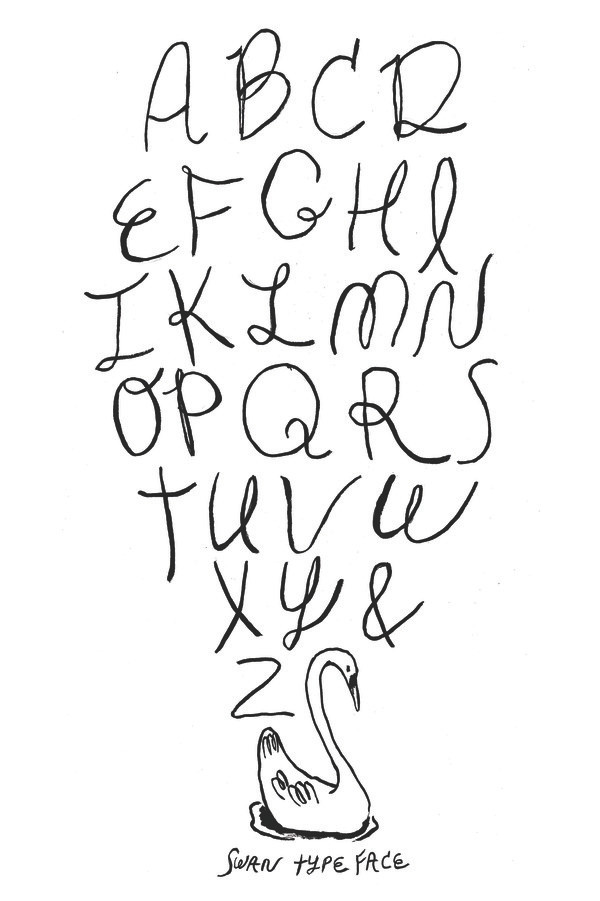 A B C D
E F G H I
J K L M N
O P Q R S
T U V W
X Y &
Z
SWAN TYPE FACE